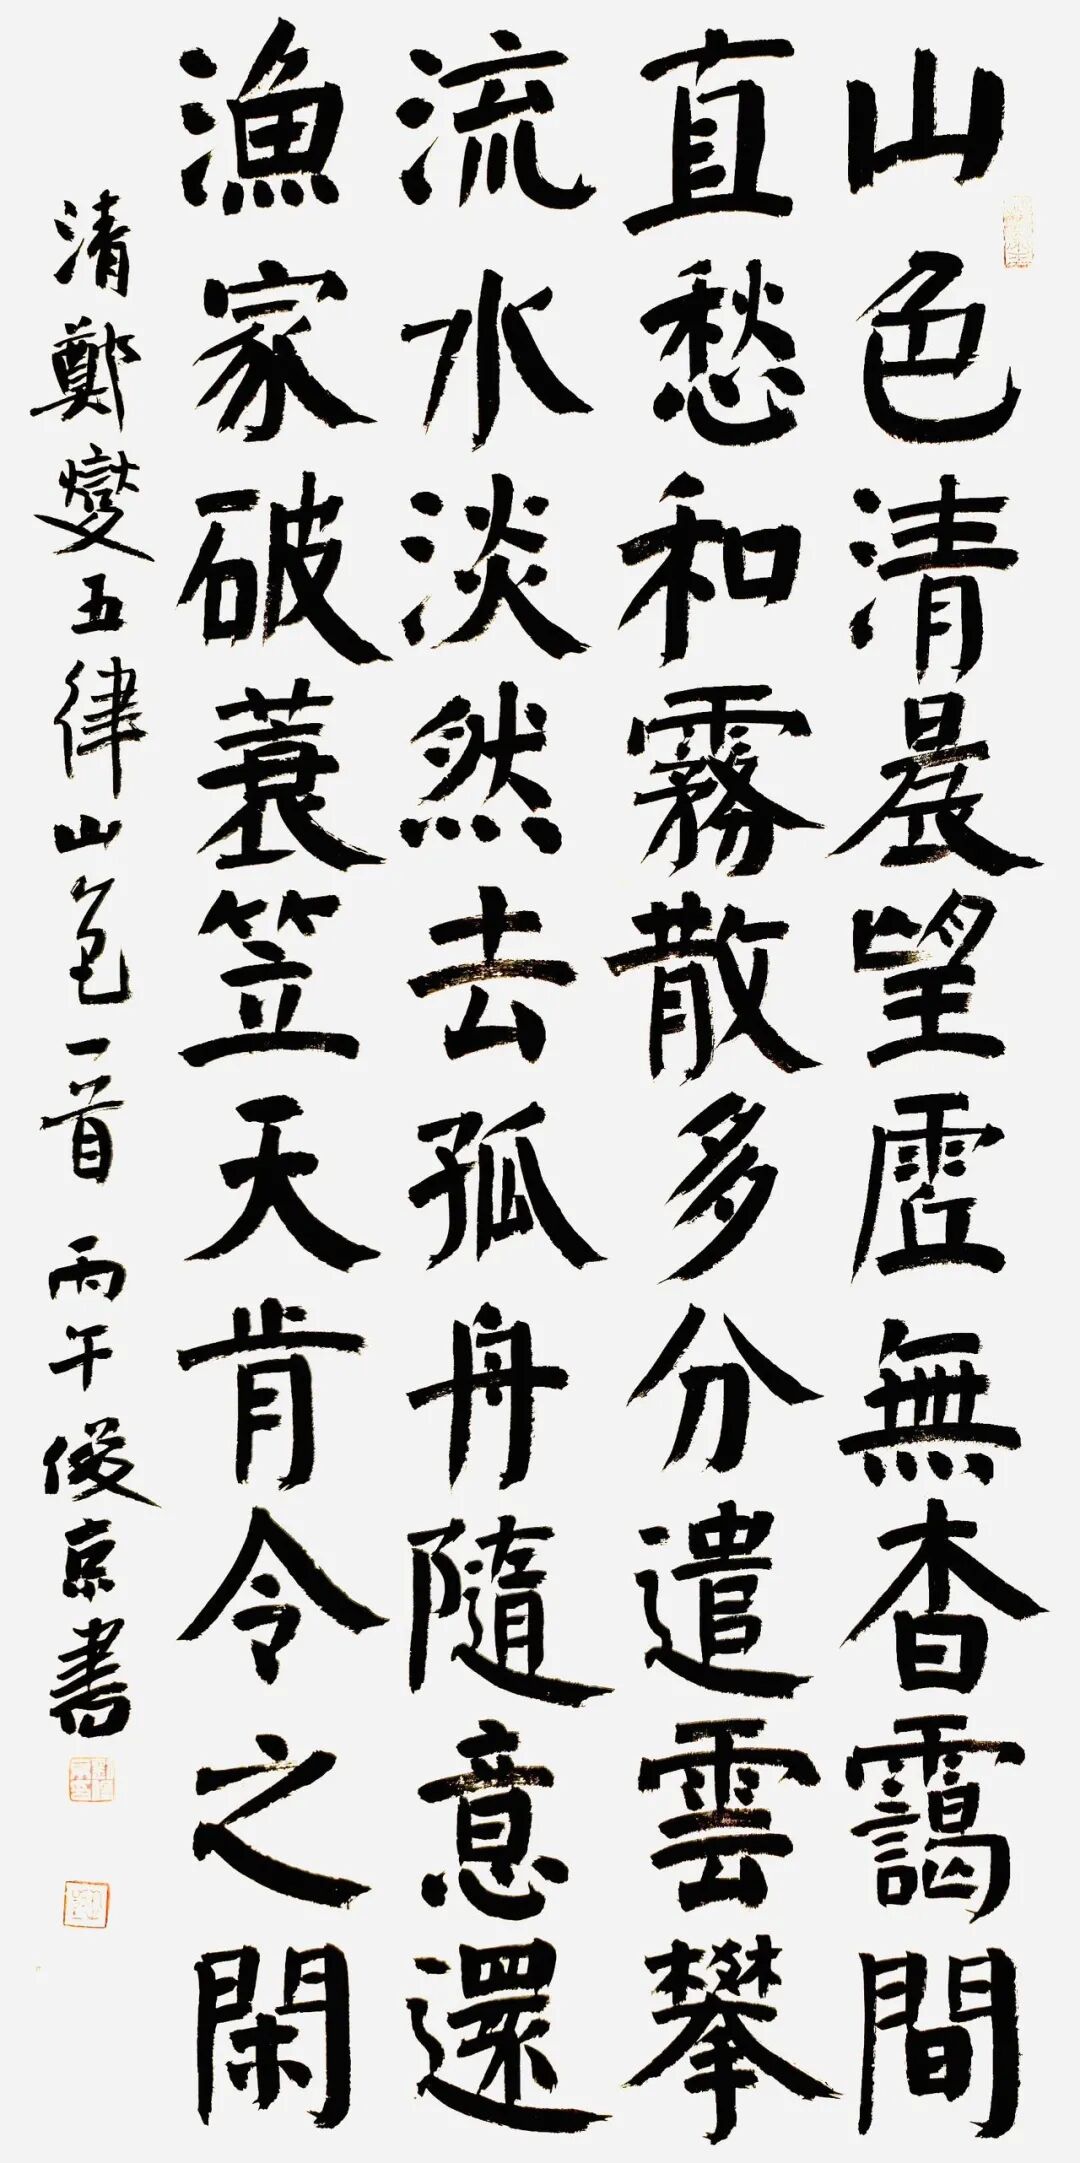 山色清晨望虛無杳靄間
直愁和霧散多分遣雲攀
流水淡然去孤舟隨意還
漁家破蓑笠天肯令之閑
清鄭燮五律山色一首 丙午 俊京書